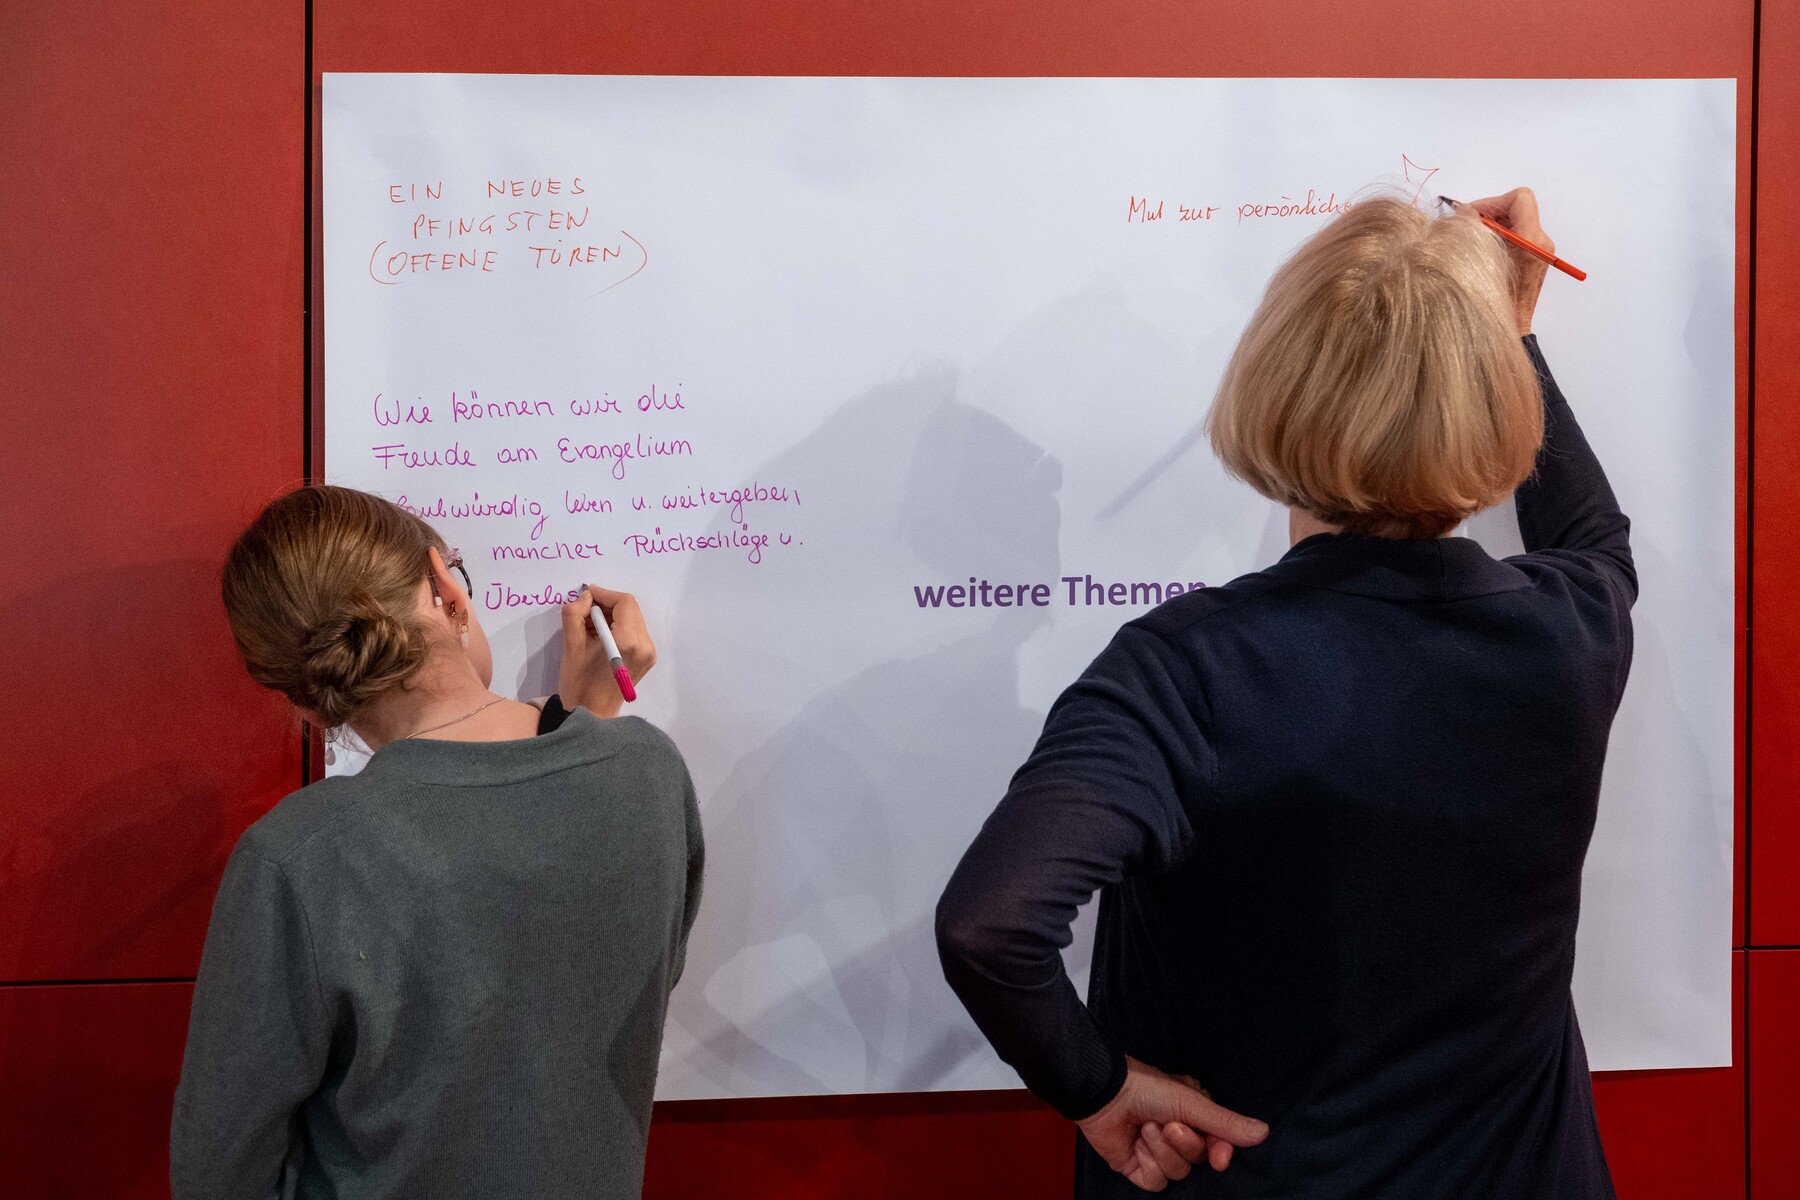 EIN NEUES
PFINGSTEN
(OFFENE TÜREN)
Mut zur persönliche
Wie können wir die
Freude am Evangelium
laubwürdig leben u. weitergeben
mancher Rückschläge u.
Überlas
weitere Themen